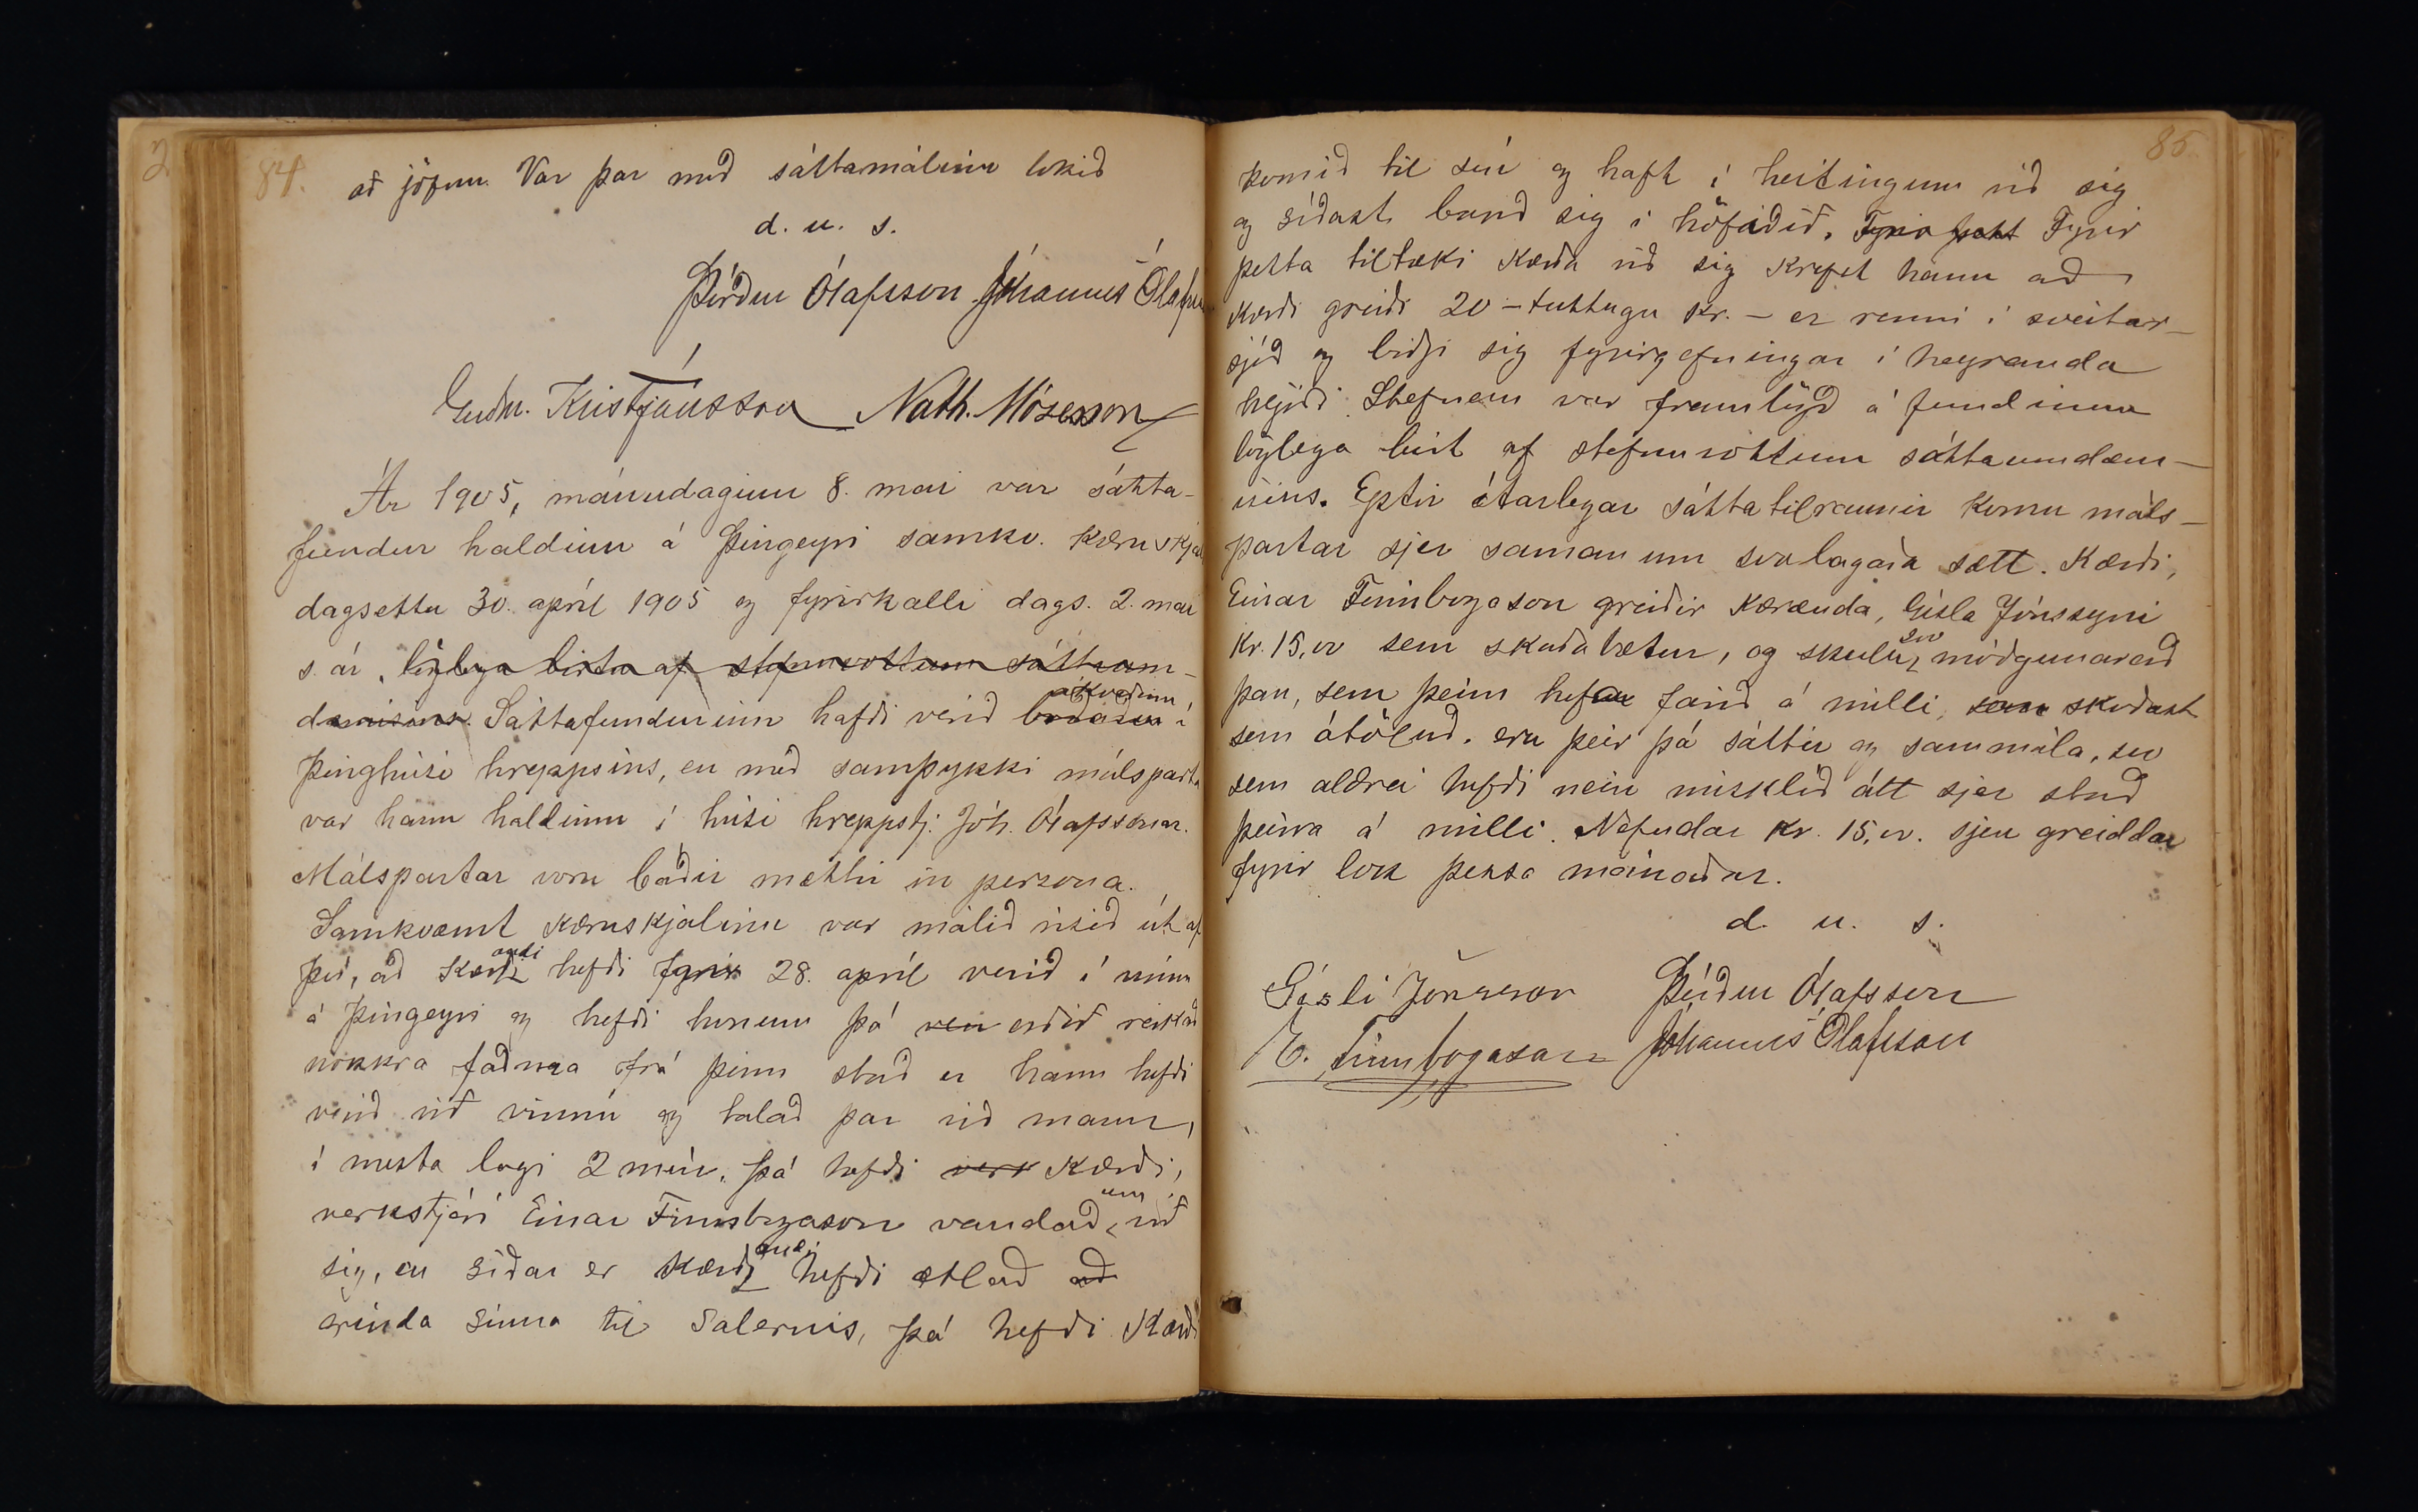 84.
að jöfnu. Var þar með sáttamálinu lokið
d. u. s.
Þórður Ólafsson Jóhannes Ólafsson
Guðm. Kristjánsson Nath. Mósesson
Ár 1905, mánudaginn 8. mai var sátta-
fundur haldinn á Þingeyri samkv. kæruskjali
dagsettu 30. apríl 1905 og fyrirkalli dags. 2. mai
s. ár, löglega birtu af stefnuvottum sáttaum-
dæmisins. Sáttafundurinn hafði verið boðaður ákveðinn í
Þinghúsi hreppsins, en með samþykki málsparta
var hann haldinn í húsi hreppstj. Jóh. Ólafssonar.
Málspartar voru báðir mættir in persona.
Samkvæmt kæruskjalinu var málið risið út af
því, að kærandi hefði fyrir 28. apríl verið í vinnu
á Þingeyri og hefði honum þá orðið reikað
nokkra faðma frá þeim stað er hann hefði
verið við vinnu og talað þar við mann,
í mesta lagi 2 mín. Þá hefði verk kærði,
verkstjóri Einar Finnbogason vandað um við
sig, en síðar er kærandi hefði ætlað að
erinda sinna til Salernis, þá hefði Kærði
85.
komið til sín og haft í heitingum við sig
og síðast band sig í höfuðið. Fyrir þetta Fyrir
þetta tiltæki kærða við sig krefst hann að
kærði greiði 20 - tuttugu kr. - er renni í sveitar-
sjóð og biðji sig fyrirgefningar í heyranda
hljóði. Stefnan var framlögð á fundinum
löglega birt af stefnuvottum sáttaumdæm-
isins. Eptir ítarlegar sáttatilraunir komu máls-
partar sjer saman um svolagaða sætt. Kærði,
Einar Finnbogason greiðir kæranda, Gísla Jónssyni
Kr. 15,00 sem skaðabætur, og skulu svo móðgunarorð
þau, sem þeim hefur farið á milli, sem skoðast
sem ótöluð. eru þeir þá sáttir og sammála, svo
sem aldrei hefði nein misklíð átt sjer stað
þeirra á milli. Nefndar Kr. 15,00. sjeu greiddar
fyrir lok þessa mánaðar.
d. u. s.
Gísli Jónsson Þórður Ólafsson
E. Finnbogason Jóhannes Ólafsson